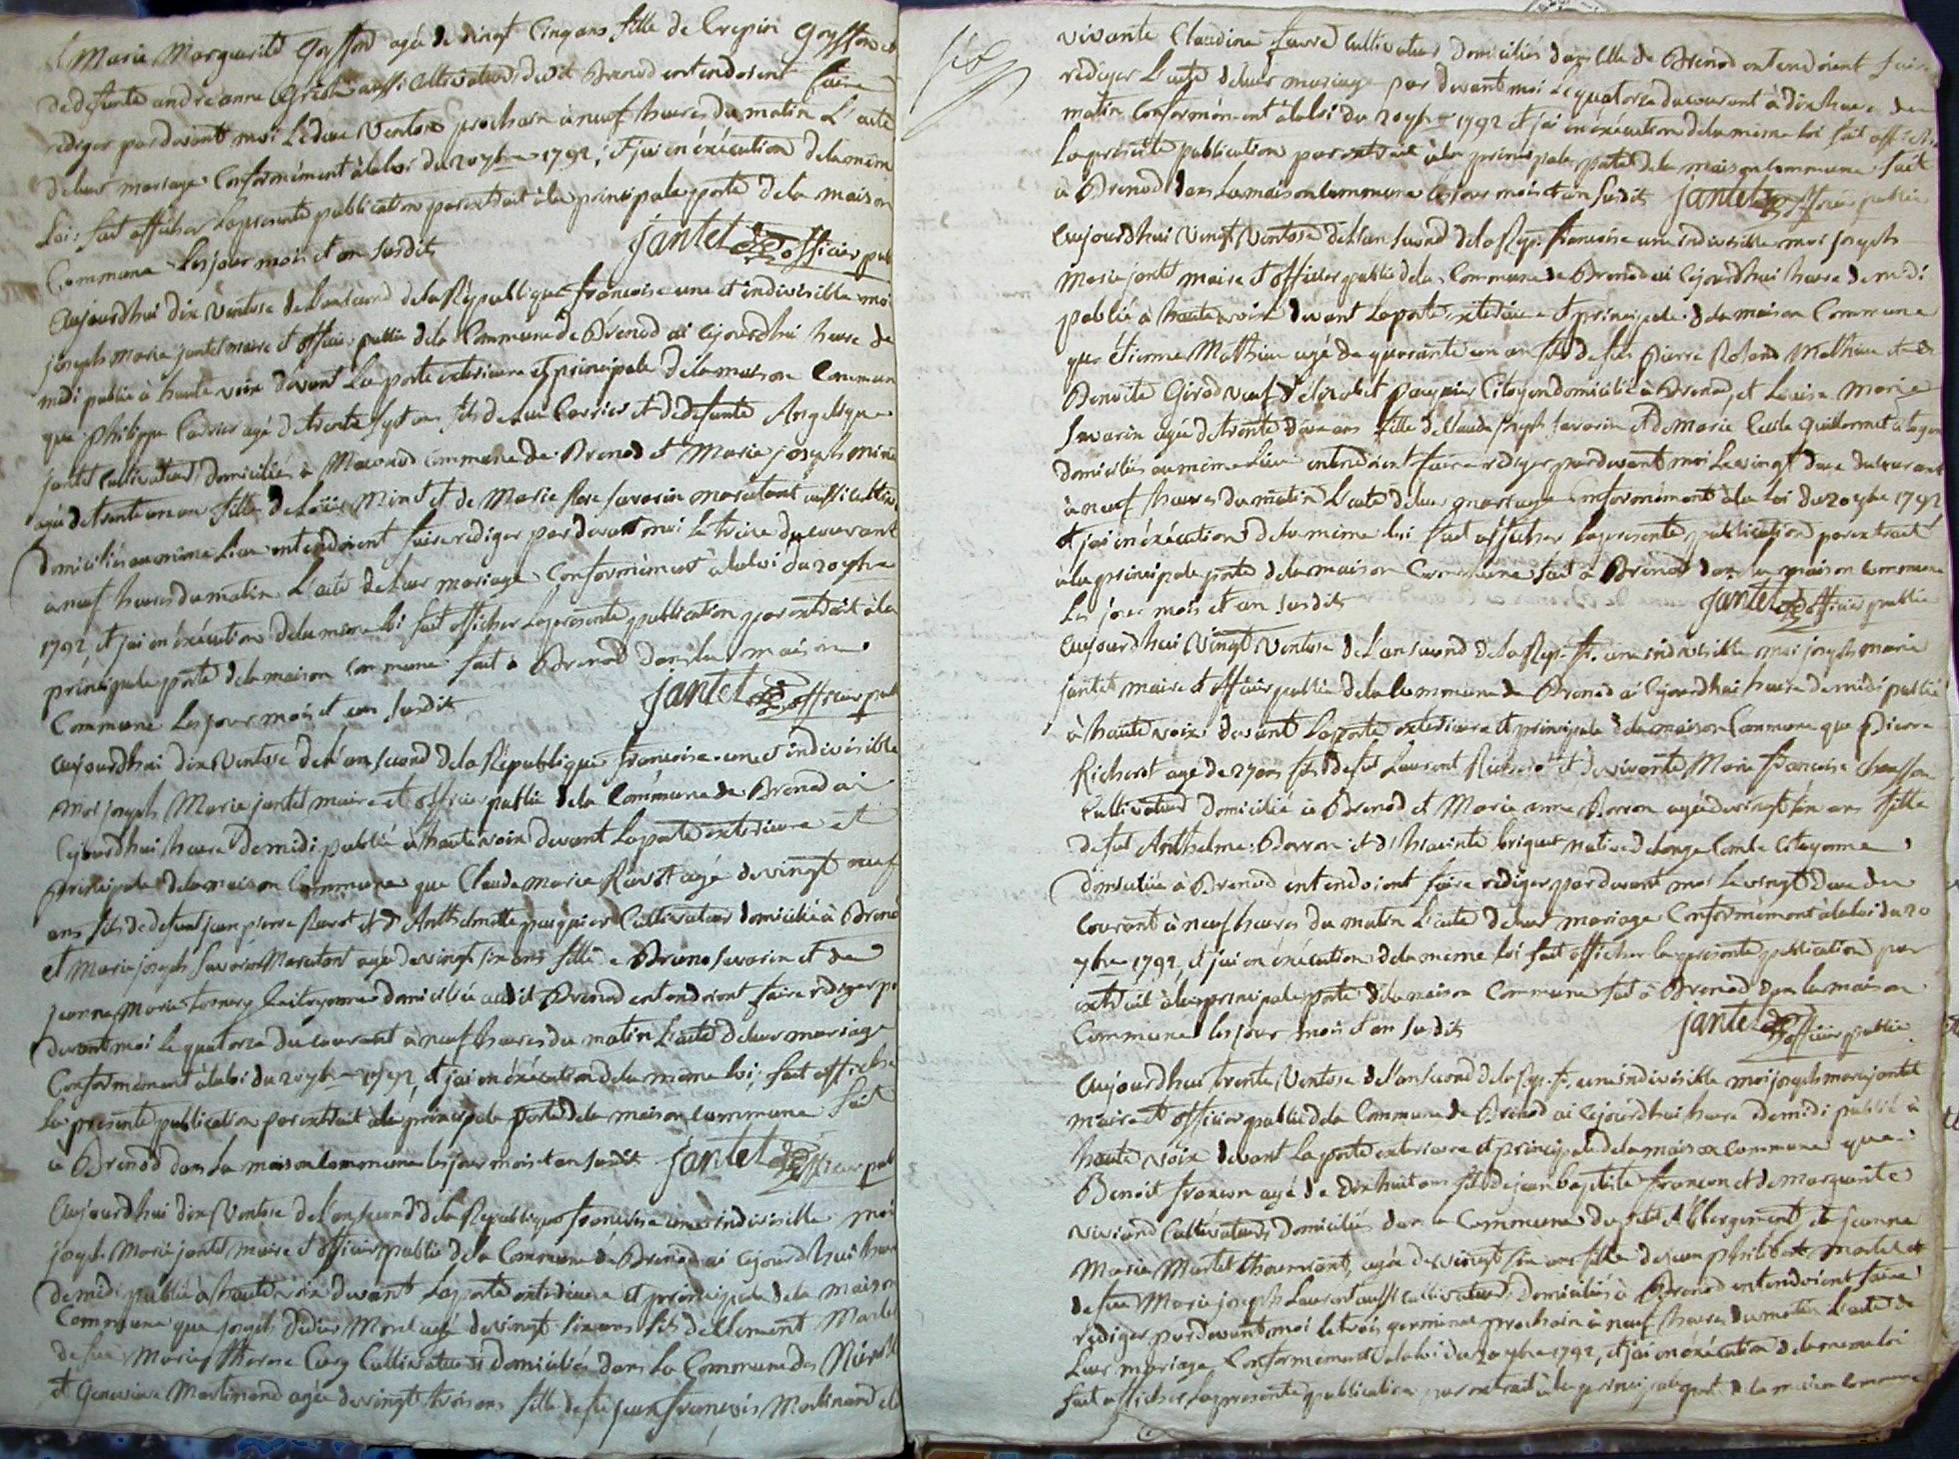 Marie Marguerite Goyffon agée de vingt Cinq ans fille de Crepin Goyffon et
de defunte andreanne aussi Cultivateurs dudit Brenod entendoient faire
rediger par devant moi Le deux Ventose prochain à neuf heures du matin L'acte
de leur mariage Conformément à la loi du 20 7bre 1792, et j'ai en éxécution de la même
Loi, fait afficher La presente publication par extrait à la principale porte de la maison
Commune Les jour mois et an susdits Jantet officier pub
Aujourdhui dix Ventose de L'an second de la République francoise une et indivisible moi
joseph Marie jantet maire et officier public de la Commune de Brenod ai Cejourdhui heure de
midi publié à haute voix devant La porte exterieure et principale de la maison Commune
que Philippe Carrier agé de trente sept ans fils de Carrier et de defunte Angelique
jantet Cultivateur domiciliés à Macconod Commune de Brenod et Marie joseph Minet
agée de trente un an fille de Loüis Minet et de Marie Rose Savarin Marutant aussi cultiv.
domiciliés au même Lieu entendoient faire rediger par devant moi Le treize du courant
à neuf heures du matin L'acte de leur mariage Conformément à la loi du 20 7bre
1792, et j'ai en éxécution de la même loi fait afficher La presente publication par extrait à la
principale porte de la maison Commune fait à Brenod dans la maison
Commune Les jour mois et an susdits Jantet officier pub
Aujourdhui dix Ventose de L'an second de la République francoise une et indivisible
moi joseph Marie jantet maire et officier public de la Commune de Brenod ai
Cejourdhui heure de midi publié à haute voix devant La porte exterieure et
principale de la maison Commune que Claude Marie Ravot agé de vingt neuf
ans fils de defunt jean pierre Ravot et d'Anthelmette pasquier Cultivateur domicilié à Brenod
et Marie joseph Savarin Marutant agée de vingt six ans fille de Bruno Savarin et de
jeanne Marie Citoyenne domiciliée audit Brenod entendoient faire rediger par
devant moi Le quatorze du courant à neuf heures du matin L'acte de leur mariage
Conformément à la loi du 20 7bre 1792, et j'ai en éxécution de la même loi, fait afficher
La presente publication par extrait à la principale porte de la maison Commune fait
à Brenod dans La maison Commune les jour mois et an susdits Jantet officier pub
Aujourdhui dix Ventose de L'an second de la République francoise une indivisible moi
joseph Marie jantet maire et officier public de la Commune de Brenod ai Cejourdhui heure
de midi publié à haute voix devant La porte exterieure et principale de la maison
Commune que joseph Didier Morel agé de vingt six ans fils de Clement Morel
de feüe Marie Therese Cary Cultivateurs domiciliés dans La Commune des
et Genevieve Martinand agée de vingt trois ans fille de feu jean françois Martinand et de
vivante Claudine favre Cultivateurs domiciliés dans Celle de Brenod entendoient faire
rediger L'acte de leur mariage par devant moi Le quatorze du courant à dix heures du
matin Conformément à la loi du 20 7bre 1792 et j'ai en éxécution de la même loi fait afficher
La presente publication par extrait à la principale porte de la maison Commune fait
à Brenod dans La maison Commune les jour mois et an susdits Jantet officier public
Aujourdhui vingt Ventose de L'an second de la Rép. francoise une indivisible moi joseph
Marie jantet maire et officier public de la Commune de Brenod ai Cejourdhui heure de midi
publié à haute voix devant La porte exterieure et principale de la maison Commune
que étienne Mathieu agé de quarante un an fils de feu Pierre Roland Mathieu et de
Benoite Girod veuf d'élizabet Pasquier Citoyen domicilié à Brenod, et Louise Marie
Savarin agée de trente deux ans fille de Claude joseph Savarin et de Marie Cecile Guillermet Citoyens
domiciliés au même Lieu entendoient faire rediger par devant moi Le vingt deux du courant
à neuf heures du matin L'acte de leur mariage Conformément à la loi du 20 7bre 1792
et j'ai en éxécution de la même loi fait afficher la presente publication par extrait
à la principale porte de la maison Commune fait à Brenod dans la maison Commune
Les jour mois et an susdits Jantet officier public
Aujourdhui vingt Ventose de L'an second de la Rép. fr. une indivisible moi joseph marie
jantet maire et officier public de la Commune de Brenod ai Cejourdhui heure de midi publié
à haute voix devant La porte exterieure et principale de la maison Commune que Pierre
Richerot agé de 27 ans fils de feu Laurent Richerot et de vivante Marie francoise
Cultivateur domicilié à Brenod et Marie anne Borron agée de vingt six ans fille
de feu Anthelme Borron et d'hiacinte native de longe Combe Citoyenne
domiciliée à Brenod entendoient faire rediger par devant moi Le vingt deux du
Courant à neuf heures du matin L'acte de leur mariage Conformément à la loi du 20
7bre 1792, et j'ai en éxécution de la même loi fait afficher la presente publication par
extrait à la principale porte de la maison Commune fait à Brenod dans la maison
Commune les jour mois et an susdits Jantet officier public
Aujourdhui trente Ventose de L'an second de la Rép. fr. une indivisible moi joseph marie jantet
maire et officier public de la Commune de Brenod ai Cejourdhui heure de midi publié à
haute voix devant La porte exterieure et principale de la maison Commune que
Benoit françon agé de dix huit ans fils de jean baptiste françon et de marguerite
viviand Cultivateurs domiciliés dans la Commune du petit Abbergement, et jeanne
Marie Martel agée de vingt six ans fille de jean philibert Martel et
de feue Marie joseph Laurent aussi cultivateurs domiciliés à Brenod entendoient faire
rediger par devant moi le trois germinal prochain à neuf heures du matin L'acte de
Leur mariage Conformément à la loi du 20 7bre 1792, et j'ai en éxécution de la même loi
fait afficher La presente publication par extrait à la principale porte de la maison Commune